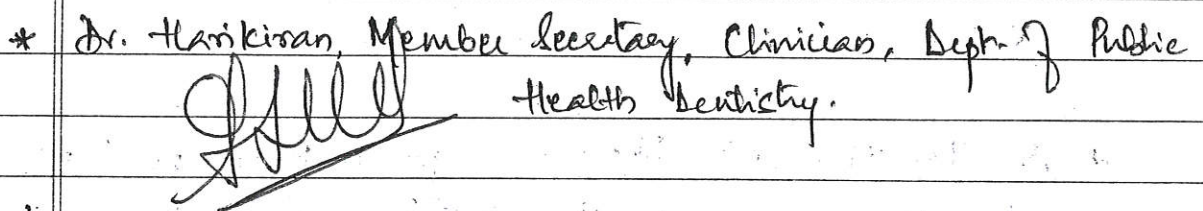 * Dr. Harikiran, Member Secretary, Clinician, Dept. of Public
Health Dentistry.